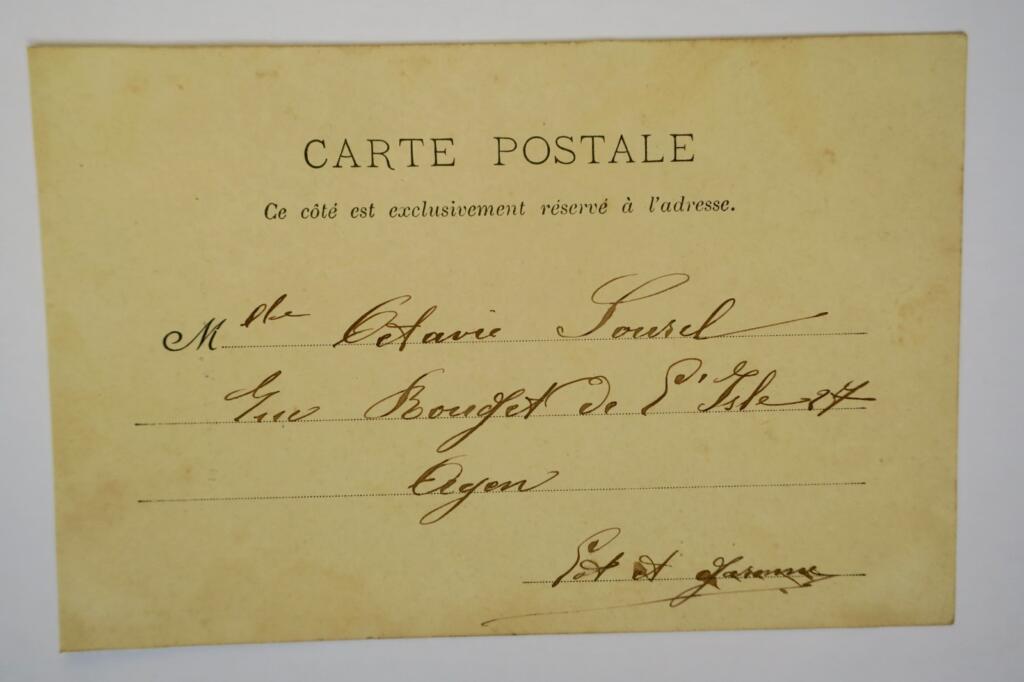 CARTE POSTALE
Ce côté est exclusivement réservé à l'adresse.
Mlle Octavie Sourel
Rue Rouget de L'Isle 27
Agen
Lot et Garonne